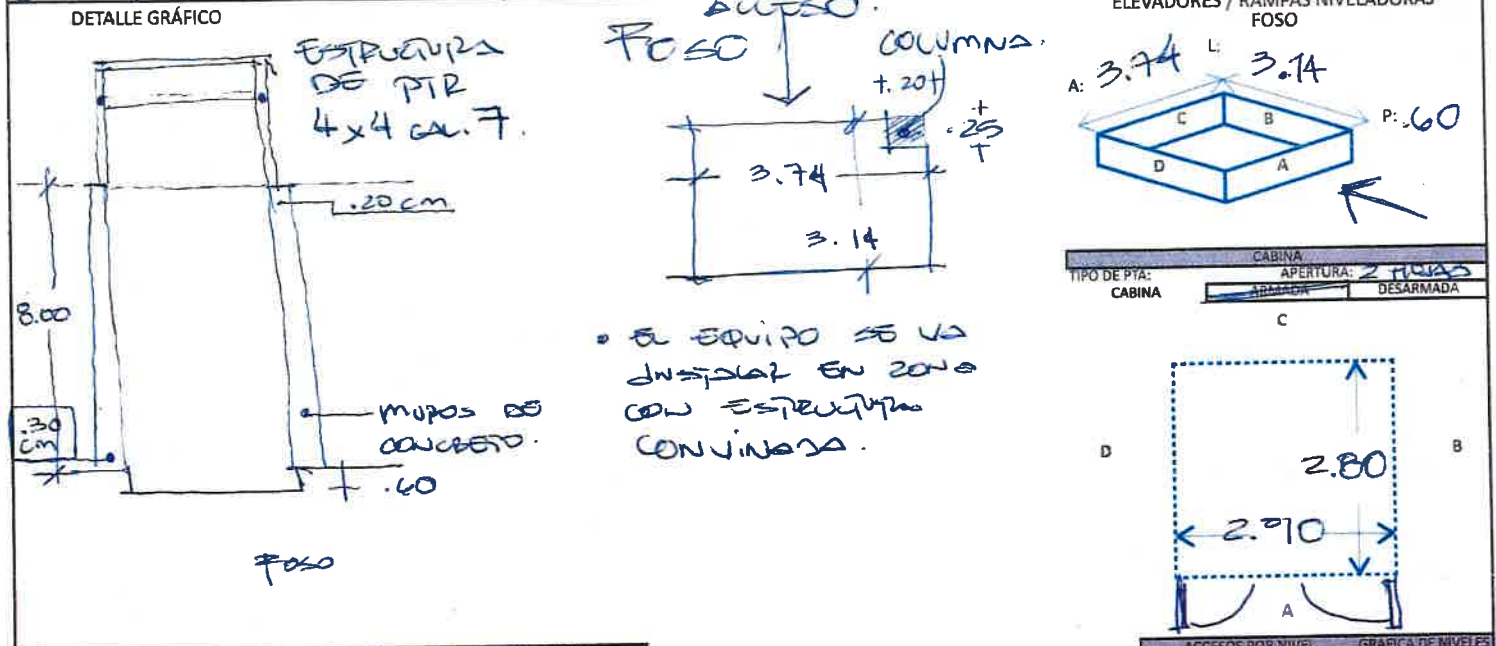 DETALLE GRÁFICO
ESTRUCTURA
DE PTR
4x4 CAL. 7.
.20 cm
8.00
.30
cm
MUROS DE
CONCRETO.
.60
FOSO
ACCESO.
FOSO
COLUMNA.
.20
.25
3.74
3.14
• EL EQUIPO SE VA
INSTALAR EN ZONA
CON ESTRUCTURA
CONVINADA.
ELEVADORES / RAMPAS NIVELADORAS
FOSO
A: 3.74 L: 3.14
P: .60
C B
D A
CABINA
TIPO DE PTA: APERTURA: 2 HOJAS
CABINA ARMADA DESARMADA
C
D B
2.80
A
ACCESOS POR NIVEL GRAFICA DE NIVELES